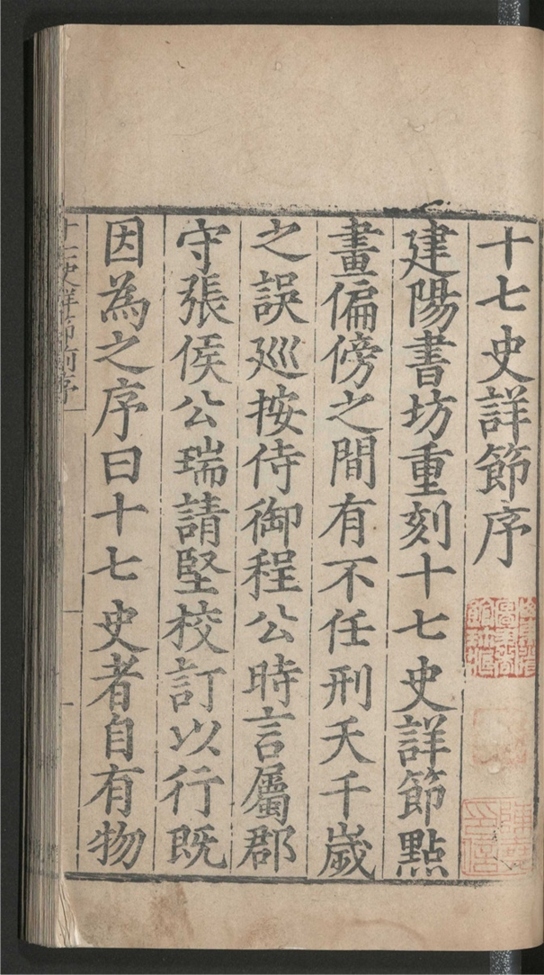 十七史詳節序
建陽書坊重刻十七史詳節點
畫偏傍之間有不任刑夭千歲
之誤廵按侍御程公時言屬郡
守張侯公瑞請堅校訂以行既
因為之序曰十七史者自有物
十七史詳節前序